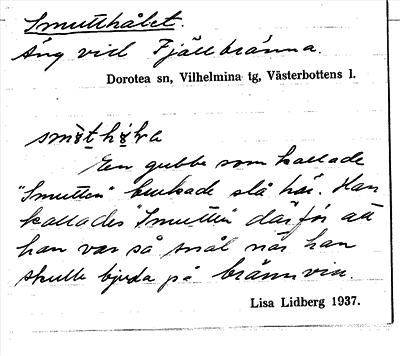 Smutthålet.
Äng vid Fjällbränna.
Dorotea sn, Vilhelmina tg, Västerbottens l.
En gubbe som kallade
"Smutten" brukade slå här. Han
kallades "Smutten" därför att
han var så snål när han
skulle bjuda på brännvin.
Lisa Lidberg 1937.